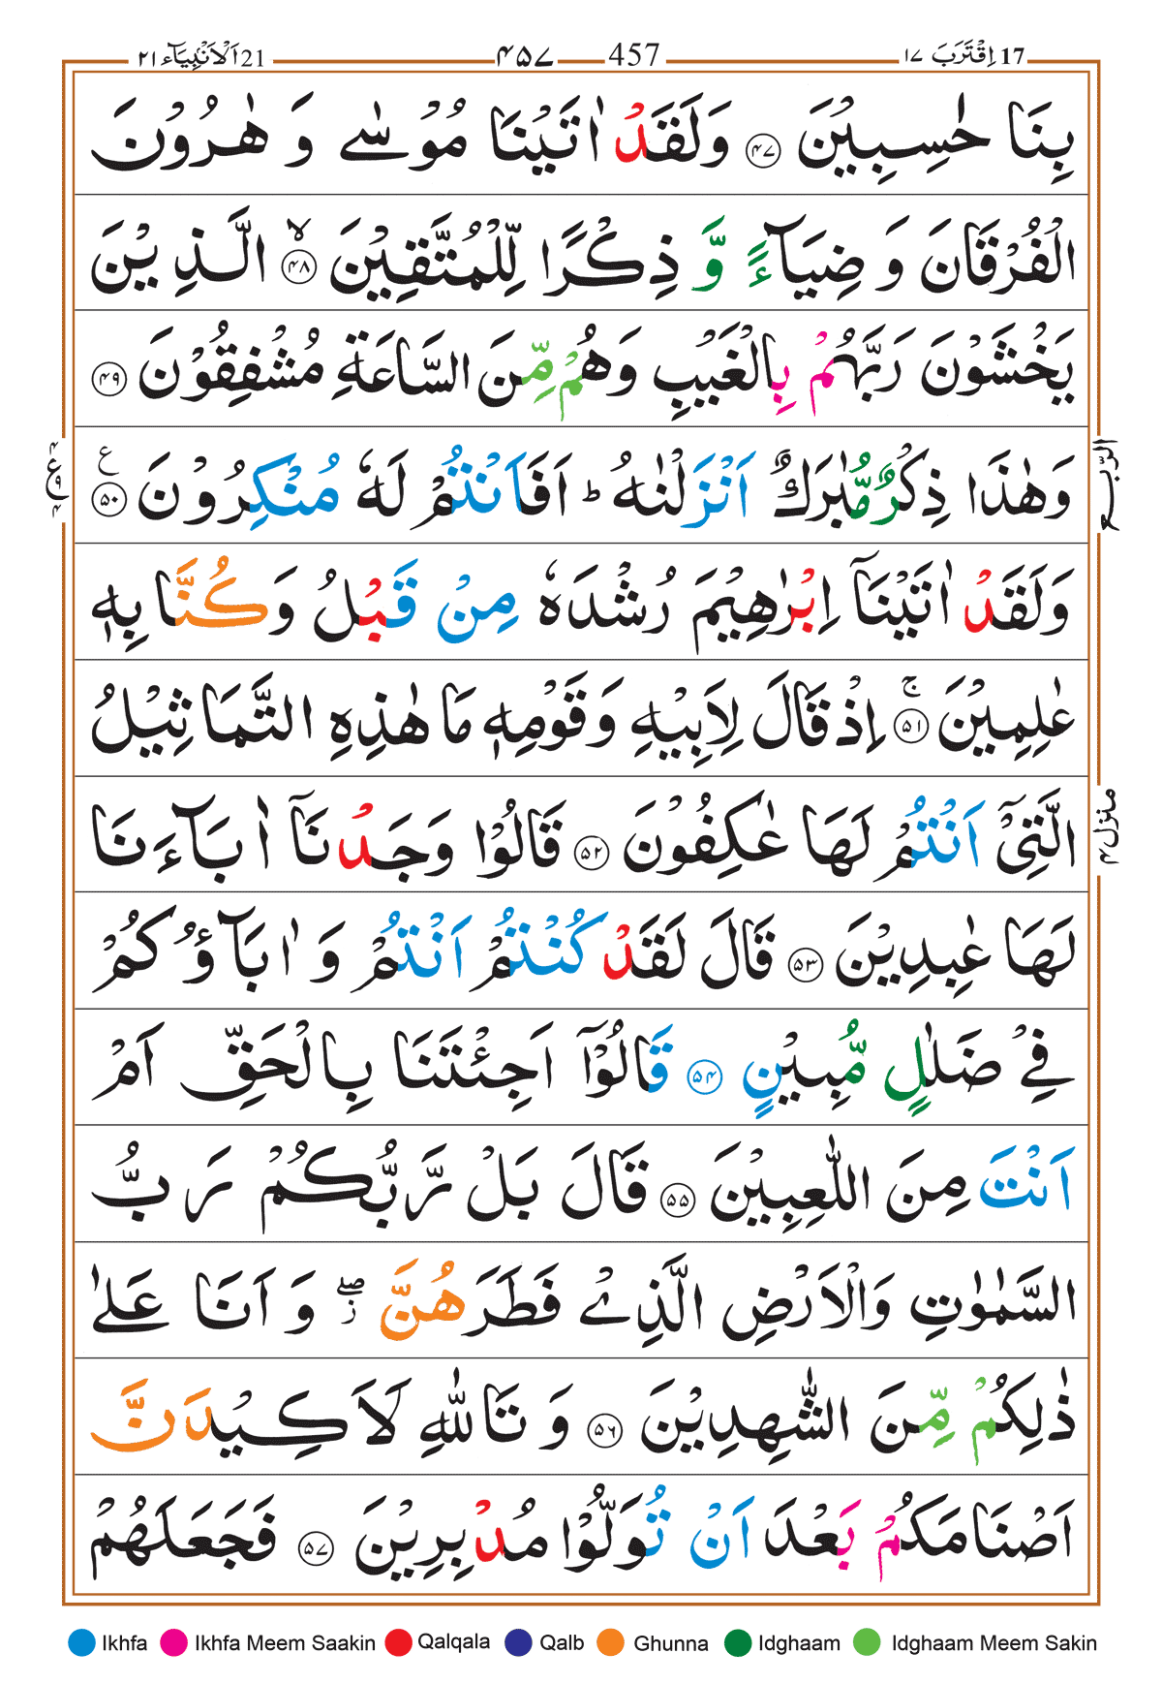 17 اِقْتَرَبَ ١٧ 457 — ۴۵۷ 21 اَلْاَنْۢبِيَآء ٢١
بِنَا حٰسِبِيْنَ ۴۷ وَلَقَدْ اٰتَيْنَا مُوْسٰى وَ هٰرُوْنَ
الْفُرْقَانَ وَ ضِيَآءً وَّ ذِكْرًا لِّلْمُتَّقِيْنَ ۙ ۴۸ الَّذِيْنَ
يَخْشَوْنَ رَبَّهُمْ بِالْغَيْبِ وَهُمْ مِّنَ السَّاعَةِ مُشْفِقُوْنَ ۴۹
وَهٰذَا ذِكْرٌ مُّبٰرَكٌ اَنْزَلْنٰهُ ؕ اَفَاَنْتُمْ لَهٗ مُنْكِرُوْنَ ۵۰ ع
الربع
وَلَقَدْ اٰتَيْنَآ اِبْرٰهِيْمَ رُشْدَهٗ مِنْ قَبْلُ وَكُنَّا بِهٖ
عٰلِمِيْنَ ۚ ۵۱ اِذْ قَالَ لِاَبِيْهِ وَقَوْمِهٖ مَا هٰذِهِ التَّمَاثِيْلُ
الَّتِيْٓ اَنْتُمْ لَهَا عٰكِفُوْنَ ۵۲ قَالُوْا وَجَدْنَآ اٰبَآءَنَا
منزل ۴
لَهَا عٰبِدِيْنَ ۵۳ قَالَ لَقَدْ كُنْتُمْ اَنْتُمْ وَ اٰبَآؤُكُمْ
فِيْ ضَلٰلٍ مُّبِيْنٍ ۵۴ قَالُوْٓا اَجِئْتَنَا بِالْحَقِّ اَمْ
اَنْتَ مِنَ اللّٰعِبِيْنَ ۵۵ قَالَ بَلْ رَّبُّكُمْ رَبُّ
السَّمٰوٰتِ وَالْاَرْضِ الَّذِيْ فَطَرَهُنَّ ۖ ز وَ اَنَا عَلٰى
ذٰلِكُمْ مِّنَ الشّٰهِدِيْنَ ۵۶ وَ تَاللّٰهِ لَاَكِيْدَنَّ
اَصْنَامَكُمْ بَعْدَ اَنْ تُوَلُّوْا مُدْبِرِيْنَ ۵۷ فَجَعَلَهُمْ
Ikhfa Ikhfa Meem Saakin Qalqala Qalb Ghunna Idghaam Idghaam Meem Sakin